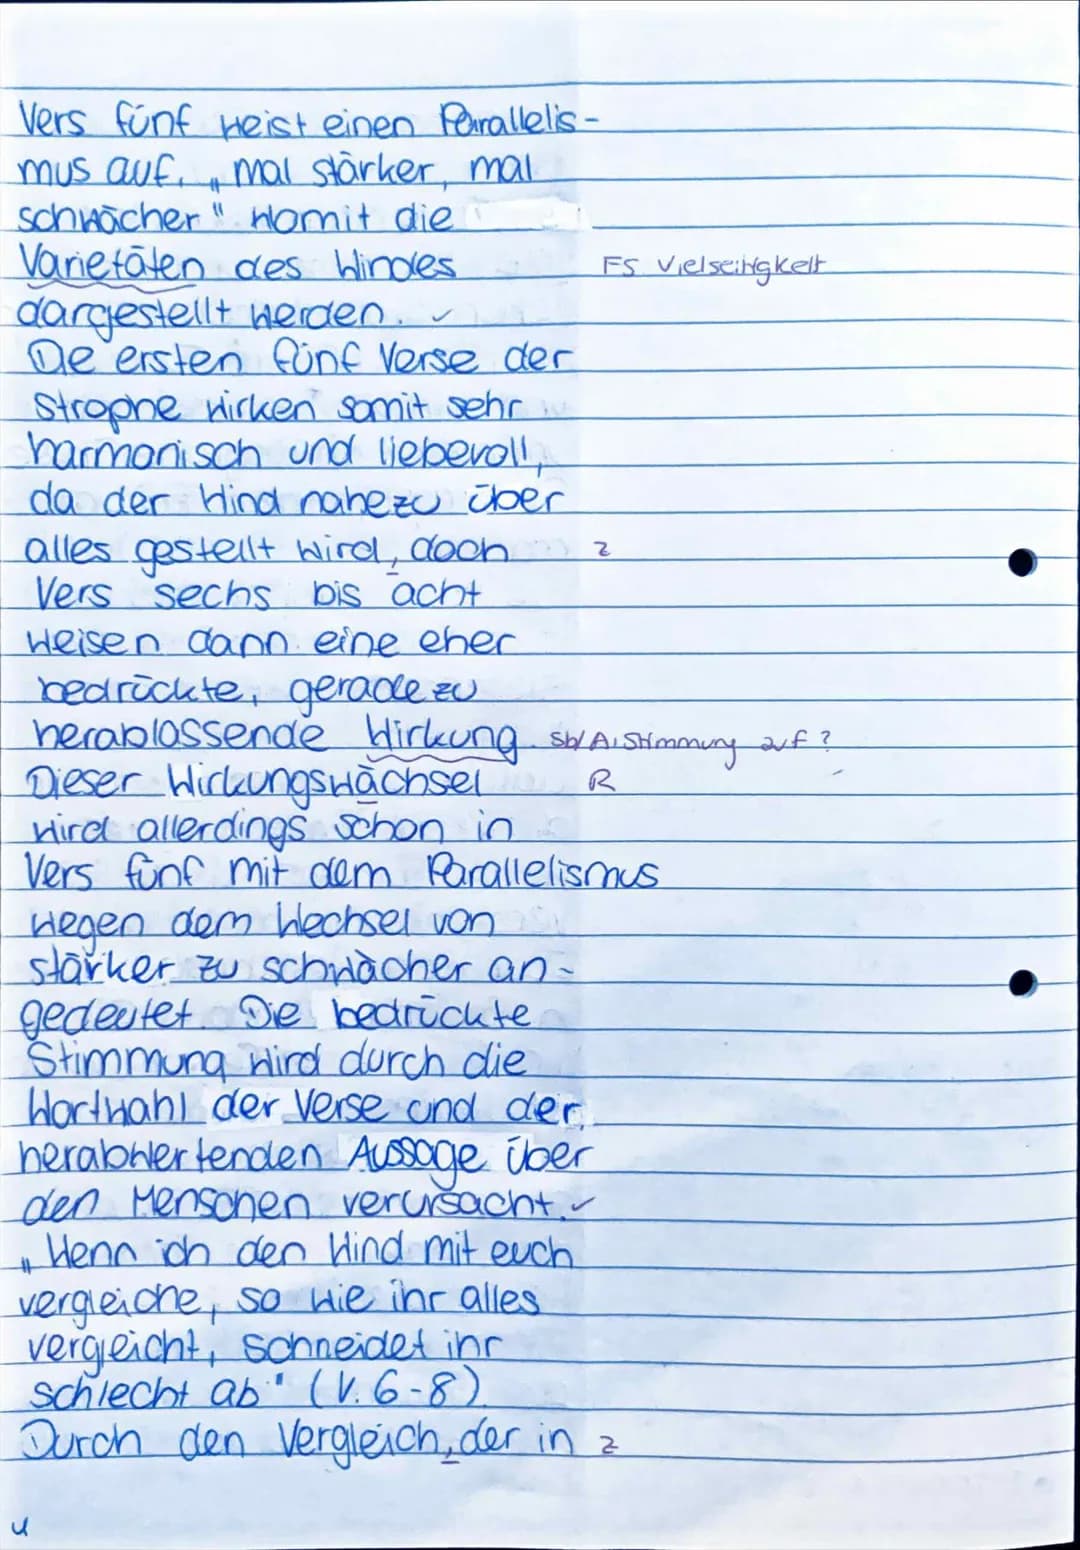 Vers fünf weist einen Parallelis-
mus auf. „mal stärker, mal
schwächer" womit die
Varietäten des Windes FS Vielseitigkeit
dargestellt werden. ✓
Die ersten fünf Verse der
Strophe wirken somit sehr
harmonisch und liebevoll,
da der Wind nahezu über
alles gestellt wird, doch z
Vers sechs bis acht
weisen dann eine eher
bedrückte, geradezu
herablassende Wirkung. Sb/A: Stimmung auf?
Dieser Wirkungswächsel R
wird allerdings schon in
Vers fünf mit dem Parallelismus
wegen dem Wechsel von
stärker zu schwächer an-
gedeutet. Die bedrückte
Stimmung wird durch die
Wortwahl der Verse und der
herabwertenden Aussage über
den Menschen verursacht. ✓
„Wenn ich den Wind mit euch
vergleiche, so wie ihr alles
vergleicht, schneidet ihr
schlecht ab" (V. 6-8).
Durch den Vergleich, der in z
4